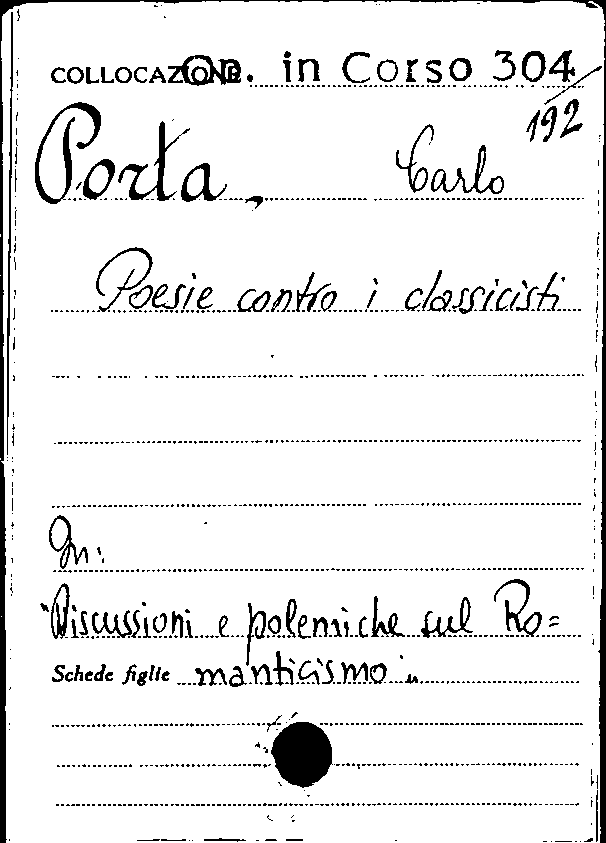 COLLOCAZIONE Op. in Corso 304/
192
Porta, Carlo
Poesie contro i classicisti
In:
"Discussioni e polemiche sul Ro=
Schede figlie manticismo"